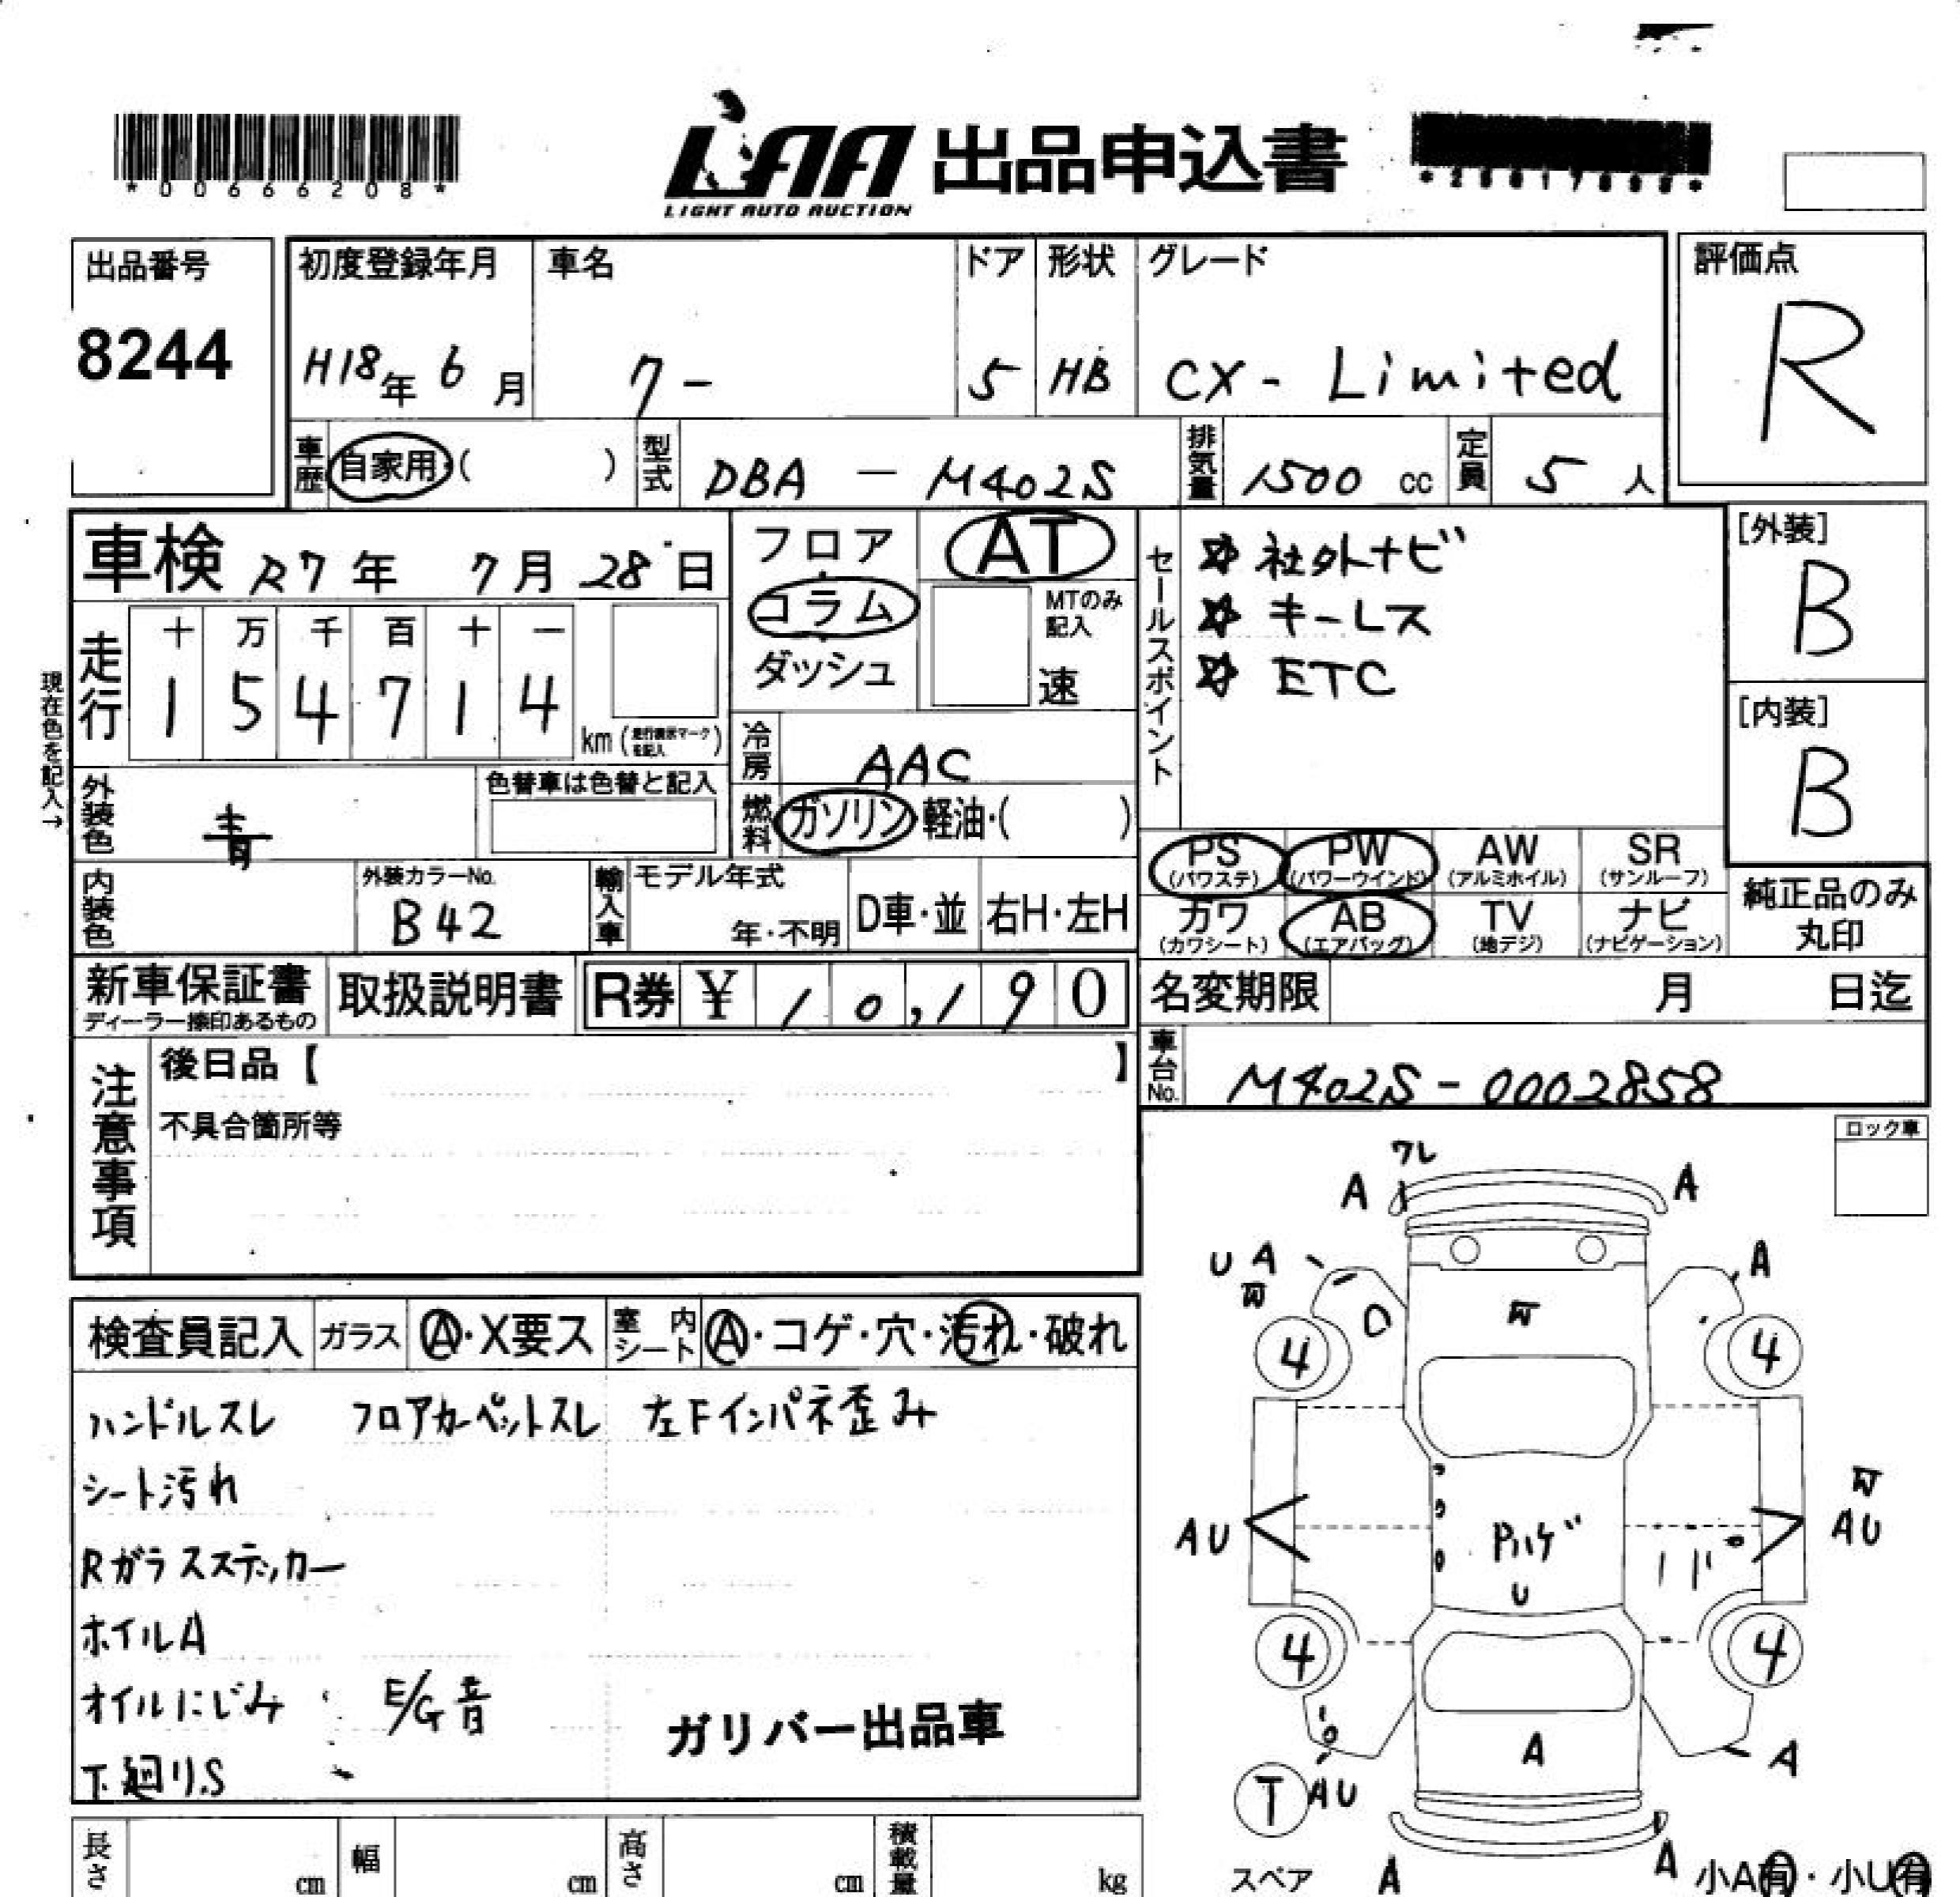 *00666208*
LAA 出品申込書
LIGHT AUTO AUCTION
出品番号
8244
初度登録年月
H18年 6月
車名
クー
ドア
5
形状
HB
グレード
CX - Limited
評価点
R
車歴 自家用・( )
型式 DBA - M402S
排気量 1500 cc
定員 5 人
車検 R7年 7月 28日
フロア
コラム
ダッシュ
AT
MTのみ記入
速
セールスポイント
☆ 社外ナビ
☆ キーレス
☆ ETC
[外装]
B
[内装]
B
現在色を記入→
走行
十 万 千 百 十 一
1 5 4 7 1 4
km (走行表示マークを記入)
冷房 AAC
燃料 ガソリン・軽油・( )
外装色 青
色替車は色替と記入
内装色
外装カラーNo.
B42
輸入車
モデル年式
年・不明
D車・並
右H・左H
PS (パワステ)
PW (パワーウインド)
AW (アルミホイル)
SR (サンルーフ)
カワ (カワシート)
AB (エアバッグ)
TV (地デジ)
ナビ (ナビゲーション)
純正品のみ
丸印
新車保証書
ディーラー捺印あるもの
取扱説明書
R券 ¥ 10,190
名変期限 月 日迄
車台No. M402S - 0002858
注意事項
後日品【 】
不具合箇所等
ロック車
検査員記入
ガラス A・X要ス
室内シート A・コゲ・穴・汚れ・破れ
ハンドルスレ フロアカーペットスレ 左Fインパネ歪み
シート汚れ
Rガラスステッカー
ホイルA
オイルにじみ E/G音
下廻りS
ガリバー出品車
ワレ
A A
U A
A
4 4
AU
Pハゲ
U
AU
4 4
A
A
T
AU
スペア
A
A
小A有・小U有
長さ cm
幅 cm
高さ cm
積載量 kg